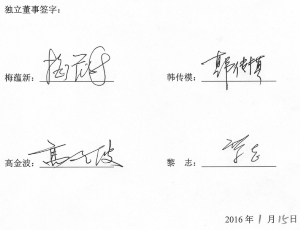 独立董事签字：
梅蕴新： 韩传模： 韩传模
高金波： 高金波 黎　志： 黎志
2016 年 1 月 15 日